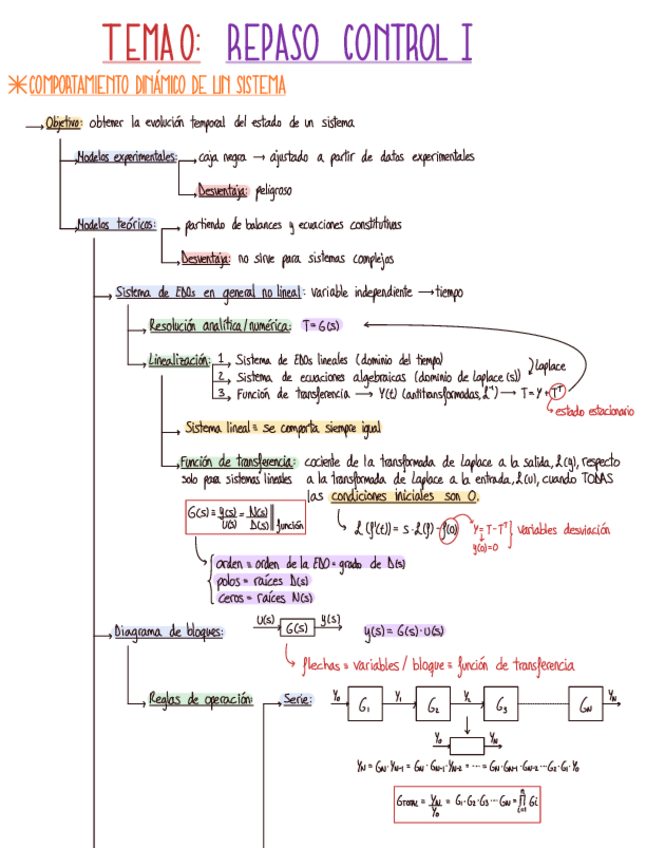 TEMA 0: REPASO CONTROL I
*COMPORTAMIENTO DINÁMICO DE UN SISTEMA
→ Objetivo: obtener la evolución temporal del estado de un sistema
→ Modelos experimentales: → caja negra → ajustado a partir de datos experimentales
→ Desventaja: peligroso
→ Modelos teóricos: → partiendo de balances y ecuaciones constitutivas
→ Desventaja: no sirve para sistemas complejos
→ Sistema de EDOs en general no lineal: variable independiente → tiempo
→ Resolución analítica/numérica: T = G(s)
→ Linealización: 1, Sistema de EDOs lineales (dominio del tiempo)
2, Sistema de ecuaciones algebraicas (dominio de Laplace (s))
Laplace
3, Función de transferencia → Y(t) (antitransformadas, L⁻¹) → T = Y +
estado estacionario
→ Sistema lineal ≡ se comporta siempre igual
→ Función de transferencia: cociente de la transformada de Laplace a la salida, L(y), respecto
solo para sistemas lineales a la transformada de Laplace a la entrada, L(u), cuando TODAS
las condiciones iniciales son 0.
G(s) ≡ y(s)/U(s) = N(s)/D(s) || función
L(f'(t)) = s · L(f) - f(0)
variables desviación
y(0)=0
orden ≡ orden de la EDO = grado de D(s)
polos ≡ raíces D(s)
ceros ≡ raíces N(s)
→ Diagrama de bloques: U(s) G(s) y(s) y(s) = G(s) · U(s)
flechas ≡ variables / bloque ≡ función de transferencia
→ Reglas de operación: → Serie: Y₀ G₁ Y₁ G₂ Y₂ G₃ GN YN
Y₀ YN
YN = GN · YN-1 = GN · GN-1 · YN-2 = ... = GN · GN-1 · GN-2 ... G2 · G1 · Y₀
GTOTAL = YN/Y₀ = G₁ · G₂ · G₃ ... GN = ∏ Gi